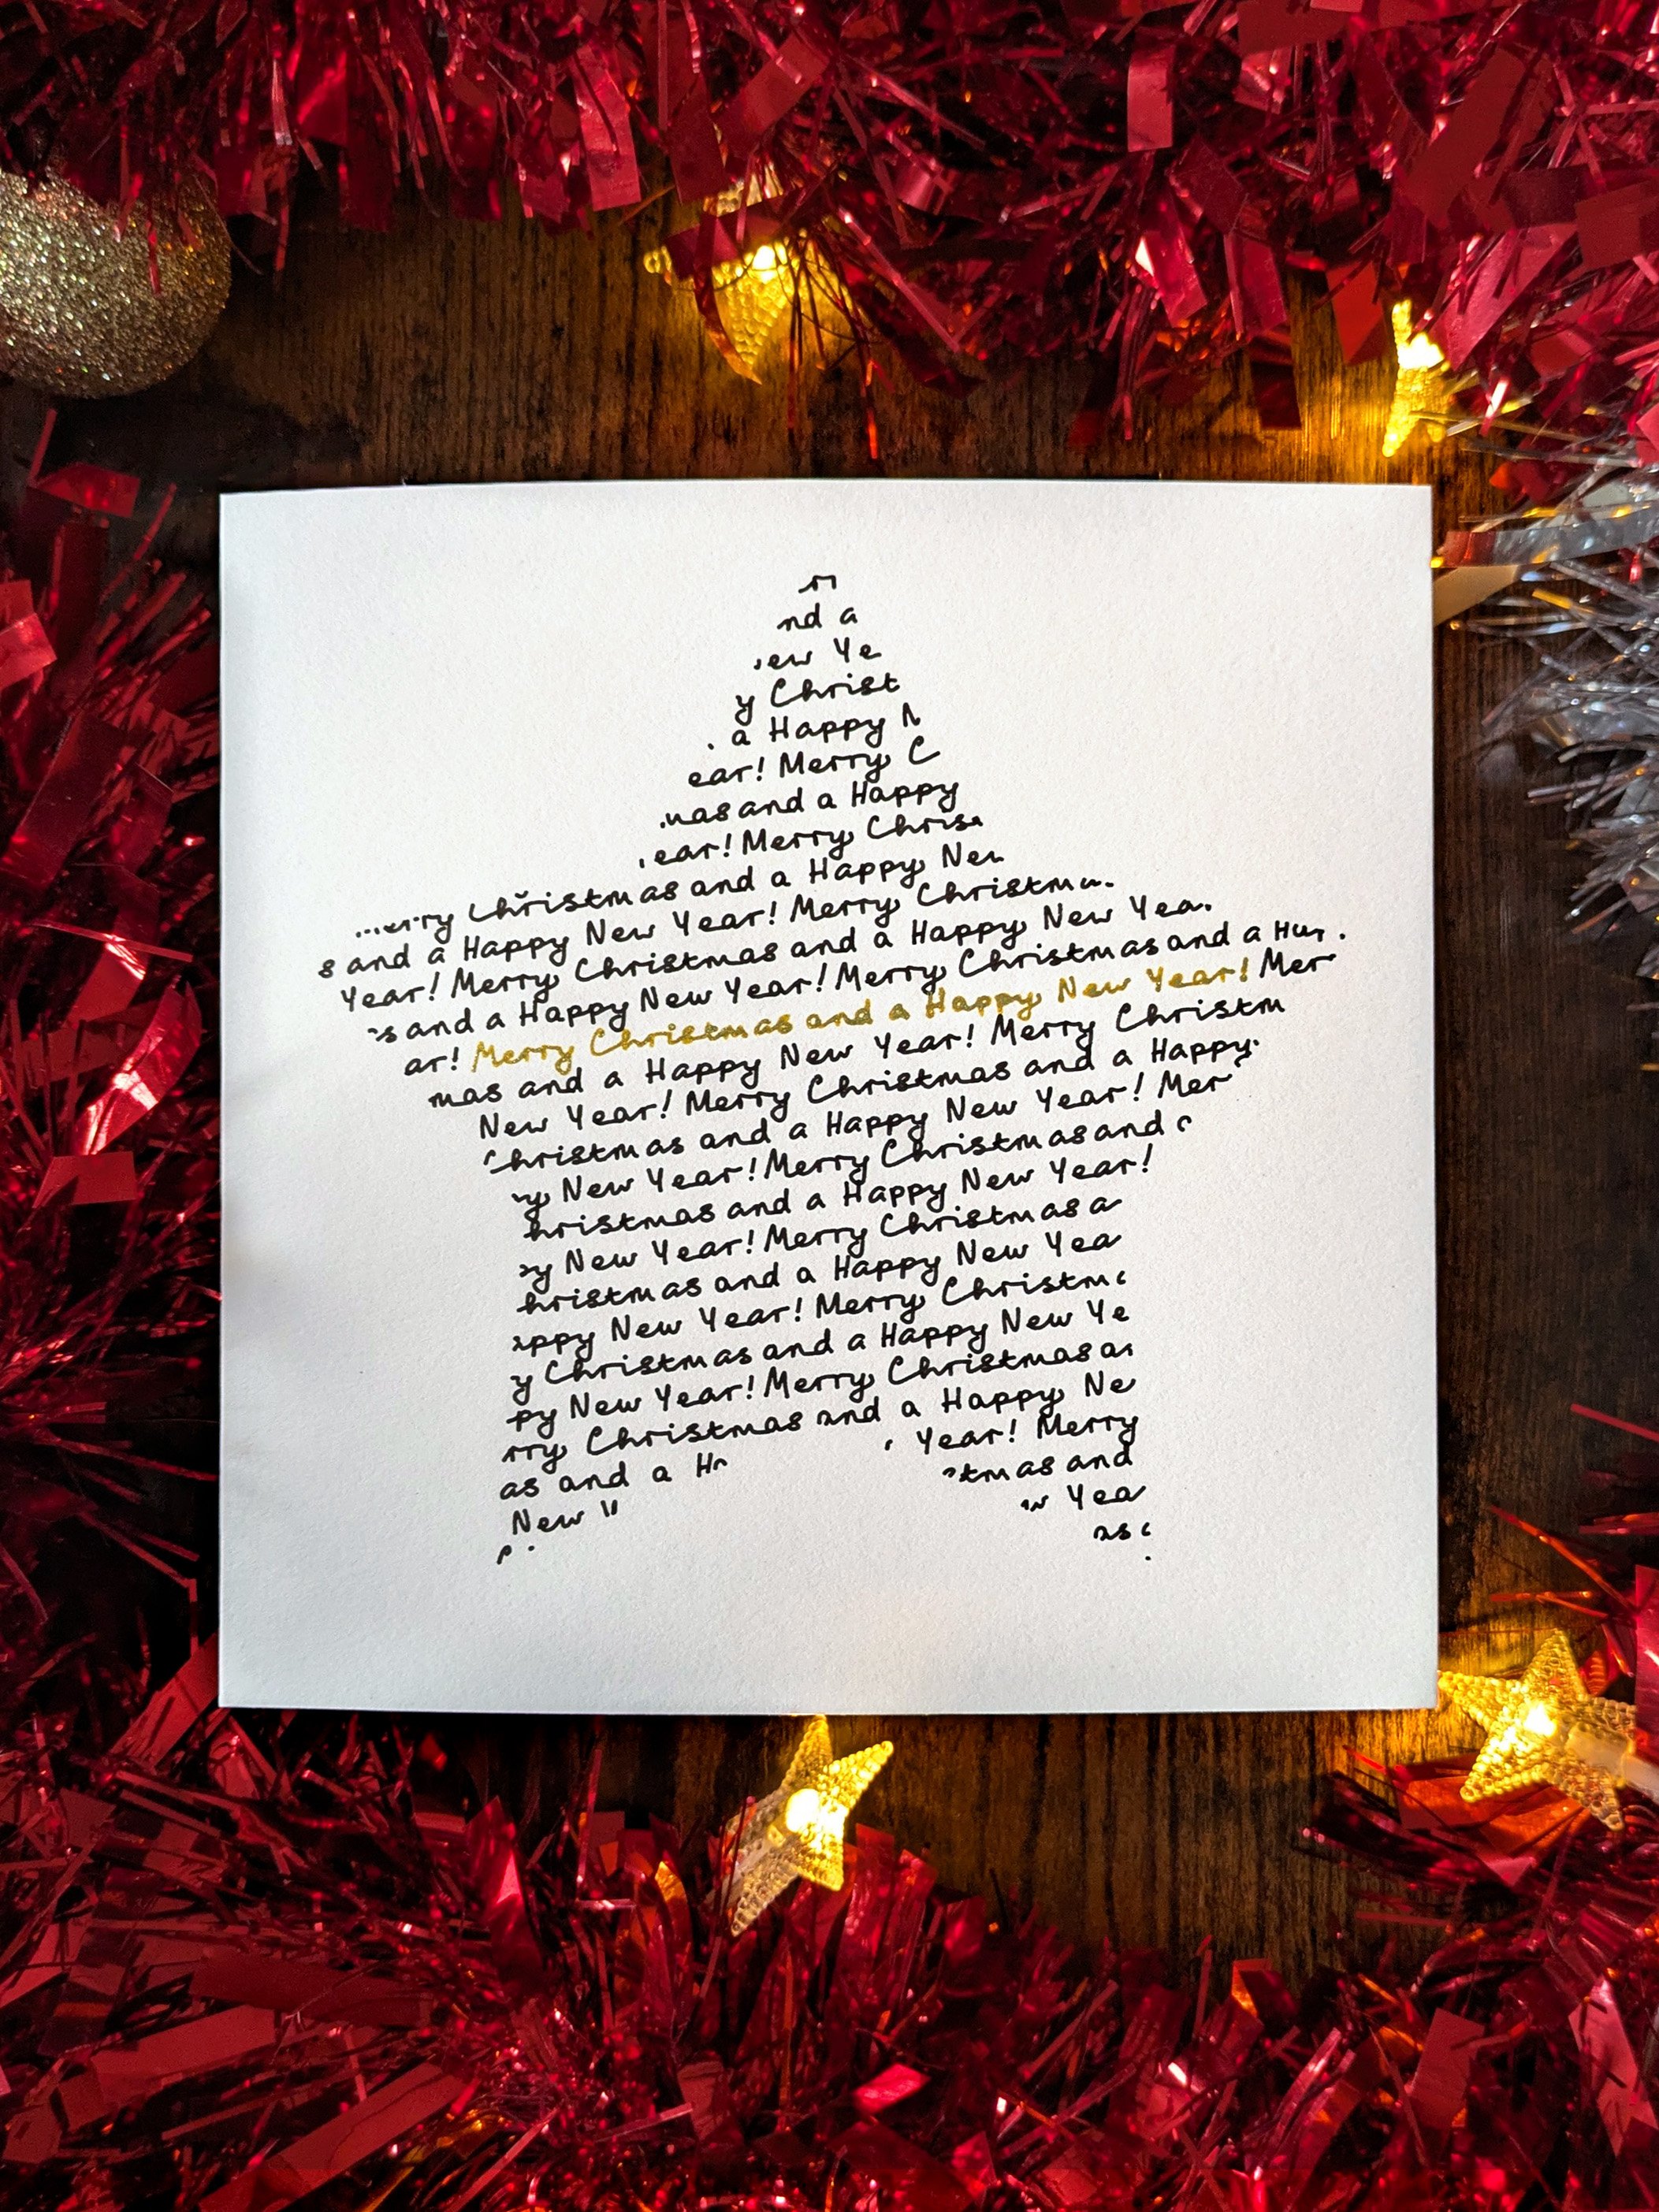 nd a
ew Ye
y Christ
a Happy N
ear! Merry C
mas and a Happy
ear! Merry Chris
erry Christmas and a Happy New
s and a Happy New Year! Merry Christma
Year! Merry Christmas and a Happy New Yea
s and a Happy New Year! Merry Christmas and a Ha
ar! Merry Christmas and a Happy New Year! Mer
mas and a Happy New Year! Merry Christm
New Year! Merry Christmas and a Happy
Christmas and a Happy New Year! Mer
y New Year! Merry Christmas and
hristmas and a Happy New Year!
y New Year! Merry Christmas a
hristmas and a Happy New Yea
ppy New Year! Merry Christm
y Christmas and a Happy New Ye
py New Year! Merry Christmas a
rry Christmas and a Happy Ne
as and a H Year! Merry
New tmas and
w Yea
as